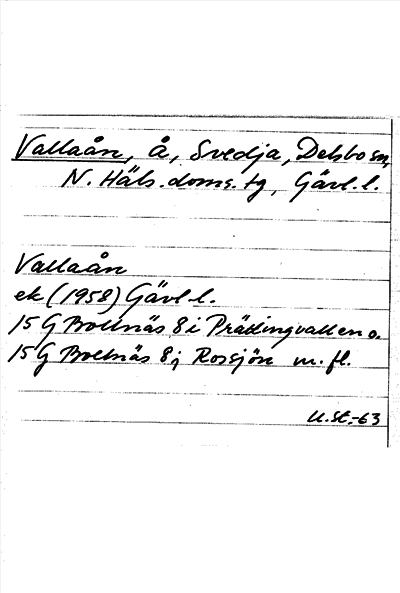 Vallaån, å, Svedja, Delsbo sn,
N. Häls. doms. tg, Gävl. l.
Vallaån
ek (1958) Gävl. l.
15 G Bollnäs 8 i Prästingvallen o.
15 G Bollnäs 8 j Rossjön m. fl.
U.St.-63